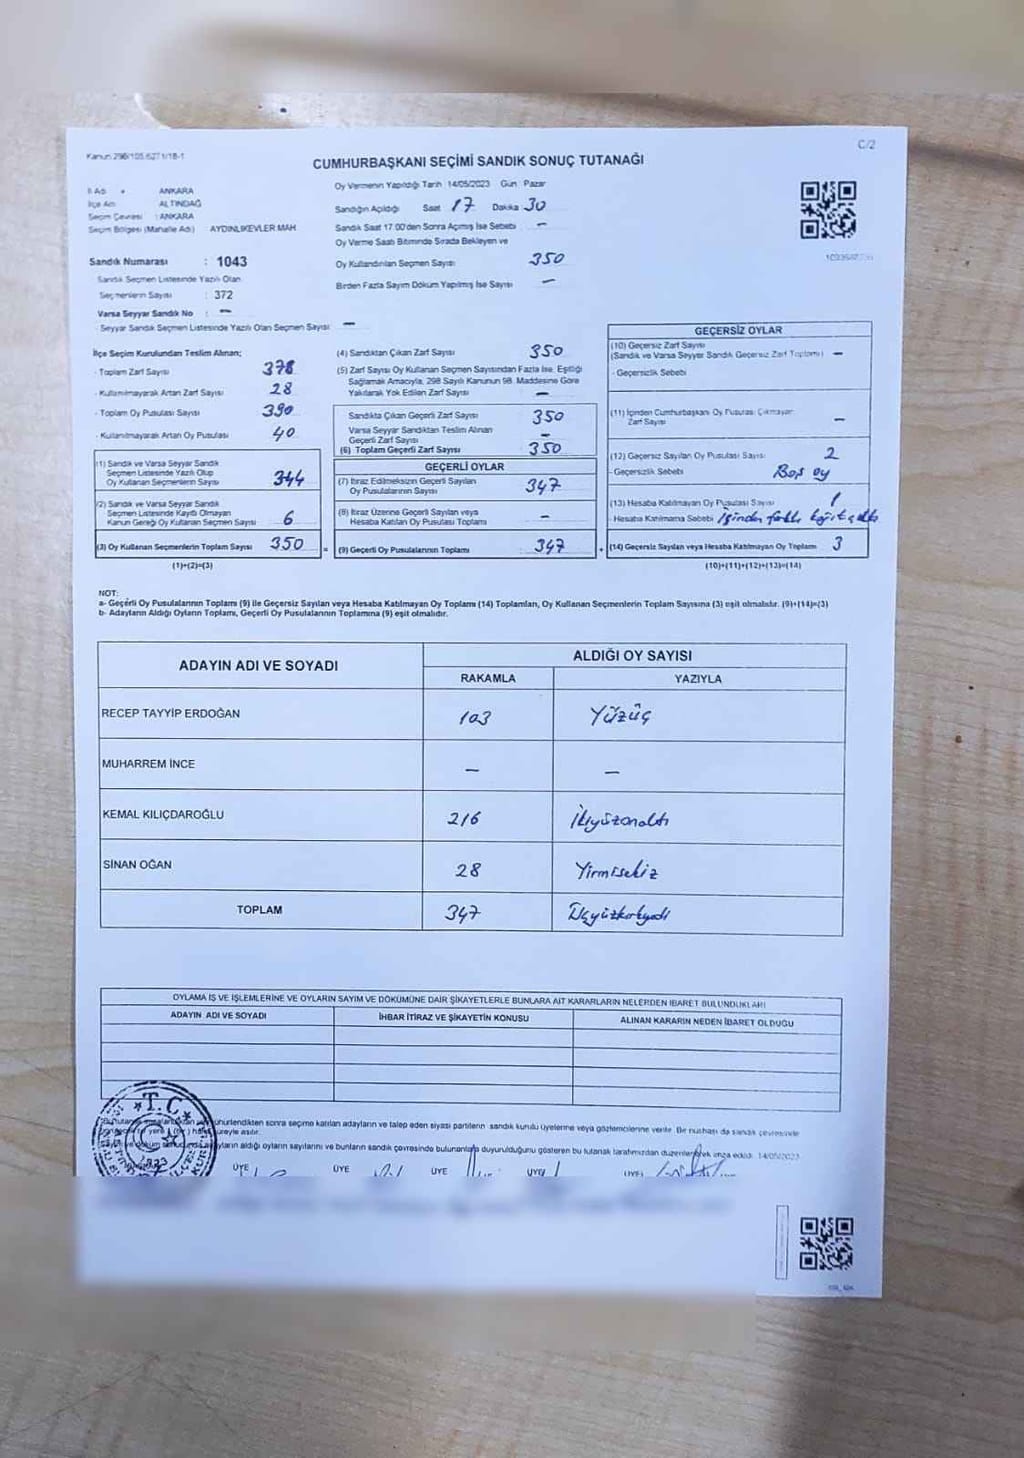 Kanun 298/105.6271/18-1
C/2
CUMHURBAŞKANI SEÇİMİ SANDIK SONUÇ TUTANAĞI
İl Adı : ANKARA
İlçe Adı : ALTINDAĞ
Seçim Çevresi : ANKARA
Seçim Bölgesi (Mahalle Adı) AYDINLIKEVLER MAH
Sandık Numarası : 1043
Sandık Seçmen Listesinde Yazılı Olan
Seçmenlerin Sayısı : 372
Varsa Seyyar Sandık No : —
- Seyyar Sandık Seçmen Listesinde Yazılı Olan Seçmen Sayısı —
Oy Vermenin Yapıldığı Tarih 14/05/2023 Gün Pazar
Sandığın Açıldığı Saat 17 Dakika 30
Sandık Saat 17.00'den Sonra Açılmış İse Sebebi —
Oy Verme Saati Bitiminde Sırada Bekleyen ve
Oy Kullandırılan Seçmen Sayısı 350
Birden Fazla Sayım Döküm Yapılmış İse Sayısı —
İlçe Seçim Kurulundan Teslim Alınan;
- Toplam Zarf Sayısı 378
- Kullanılmayarak Artan Zarf Sayısı 28
- Toplam Oy Pusulası Sayısı 390
- Kullanılmayarak Artan Oy Pusulası 40
(1) Sandık ve Varsa Seyyar Sandık
Seçmen Listesinde Yazılı Olup
Oy Kullanan Seçmenlerin Sayısı 344
(2) Sandık ve Varsa Seyyar Sandık
Seçmen Listesinde Kayıtlı Olmayan
Kanun Gereği Oy Kullanan Seçmen Sayısı 6
(3) Oy Kullanan Seçmenlerin Toplam Sayısı 350
(1)+(2)=(3)
(4) Sandıktan Çıkan Zarf Sayısı 350
(5) Zarf Sayısı Oy Kullanan Seçmen Sayısından Fazla İse, Eşitliği
Sağlamak Amacıyla, 298 Sayılı Kanunun 98. Maddesine Göre
Yakılarak Yok Edilen Zarf Sayısı —
Sandıkta Çıkan Geçerli Zarf Sayısı 350
Varsa Seyyar Sandıktan Teslim Alınan
Geçerli Zarf Sayısı —
(6) Toplam Geçerli Zarf Sayısı 350
GEÇERLİ OYLAR
(7) İtiraz Edilmeksizin Geçerli Sayılan
Oy Pusulalarının Sayısı 347
(8) İtiraz Üzerine Geçerli Sayılan veya
Hesaba Katılan Oy Pusulası Toplamı —
= (9) Geçerli Oy Pusulalarının Toplamı 347
GEÇERSİZ OYLAR
(10) Geçersiz Zarf Sayısı
(Sandık ve Varsa Seyyar Sandık Geçersiz Zarf Toplamı) —
- Geçersizlik Sebebi
(11) İçinden Cumhurbaşkanı Oy Pusulası Çıkmayan
Zarf Sayısı —
(12) Geçersiz Sayılan Oy Pusulası Sayısı 2
- Geçersizlik Sebebi Boş oy
(13) Hesaba Katılmayan Oy Pusulası Sayısı 1
- Hesaba Katılmama Sebebi İçinden farklı kağıt çıktı
+ (14) Geçersiz Sayılan veya Hesaba Katılmayan Oy Toplamı 3
(10)+(11)+(12)+(13)=(14)
NOT:
a- Geçerli Oy Pusulalarının Toplamı (9) ile Geçersiz Sayılan veya Hesaba Katılmayan Oy Toplamı (14) Toplamları, Oy Kullanan Seçmenlerin Toplam Sayısına (3) eşit olmalıdır. (9)+(14)=(3)
b- Adayların Aldığı Oyların Toplamı, Geçerli Oy Pusulalarının Toplamına (9) eşit olmalıdır.
ADAYIN ADI VE SOYADI
ALDIĞI OY SAYISI
RAKAMLA YAZIYLA
RECEP TAYYİP ERDOĞAN 103 Yüzüç
MUHARREM İNCE — —
KEMAL KILIÇDAROĞLU 216 İkiyüzonaltı
SİNAN OĞAN 28 Yirmisekiz
TOPLAM 347 Üçyüzkırkyedi
OYLAMA İŞ VE İŞLEMLERİNE VE OYLARIN SAYIM VE DÖKÜMÜNE DAİR ŞİKAYETLERLE BUNLARA AİT KARARLARIN NELERDEN İBARET BULUNDUKLARI
ADAYIN ADI VE SOYADI İHBAR İTİRAZ VE ŞİKAYETİN KONUSU ALINAN KARARIN NEDEN İBARET OLDUĞU
T.C.
sonra seçime katılan adayların ve talep eden siyasi partilerin sandık kurulu üyelerine veya gözlemcilerine verilir. Bir nüshası da sandık çevresinde
süreyle asılır.
aldığı oyların sayılarını ve bunların sandık çevresinde bulunanlara duyurulduğunu gösteren bu tutanak tarafımızdan düzenlenerek imza edildi. 14/05/2023
ÜYE ÜYE ÜYE ÜYE ÜYE